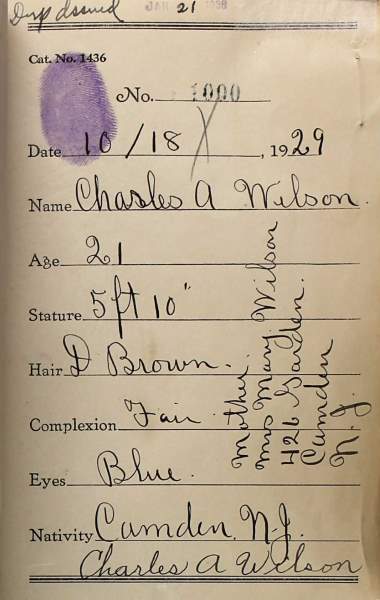 Dup issued JAN 21 1938
Cat. No. 1436
No. 1000
Date 10/18, 1929
Name Charles A Wilson.
Age 21
Stature 5ft 10"
Hair D Brown.
Complexion Fair
Eyes Blue.
Nativity Camden, N.J.
Charles A Wilson
Mother.
Mrs Mary Wilson
426 Garden.
Camden
N.J.